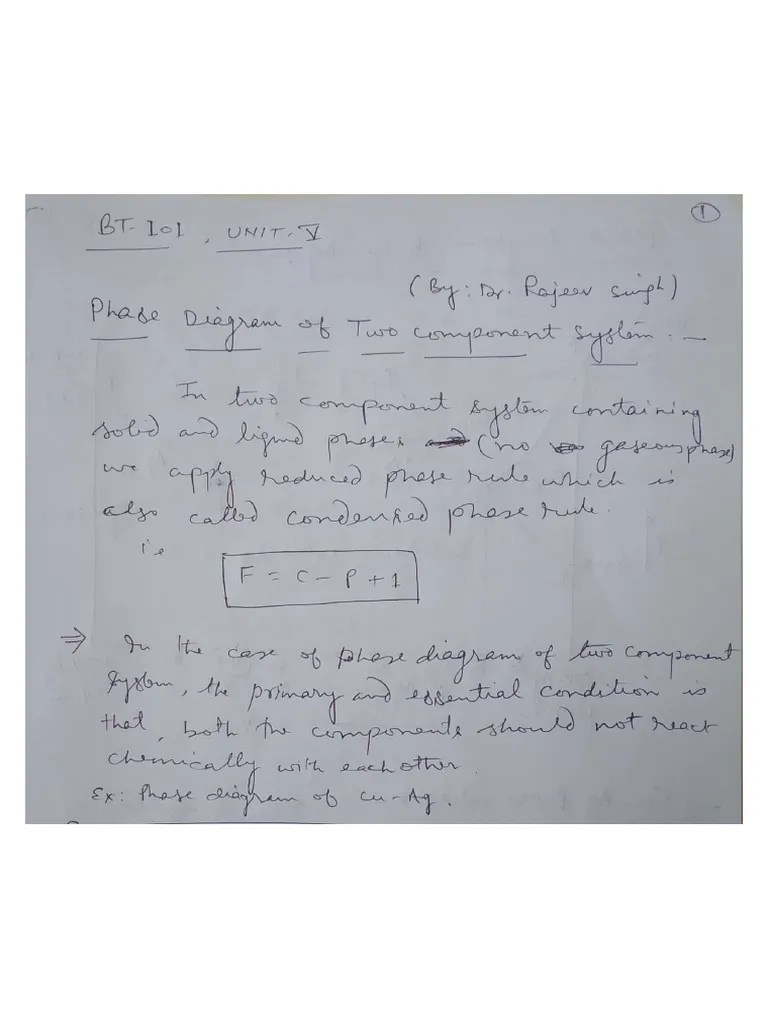 1
BT-101, UNIT-V
(By: Dr. Rajeev Singh)
Phase Diagram of Two component System: —
In two component system containing
solid and liquid phases (no gaseous phase)
we apply reduced phase rule which is
also called condensed phase rule.
i.e
F = C - P + 1
⇒ In the case of phase diagram of two component
System, the primary and essential condition is
that, both the components should not react
chemically with each other.
Ex: Phase diagram of Cu-Ag.